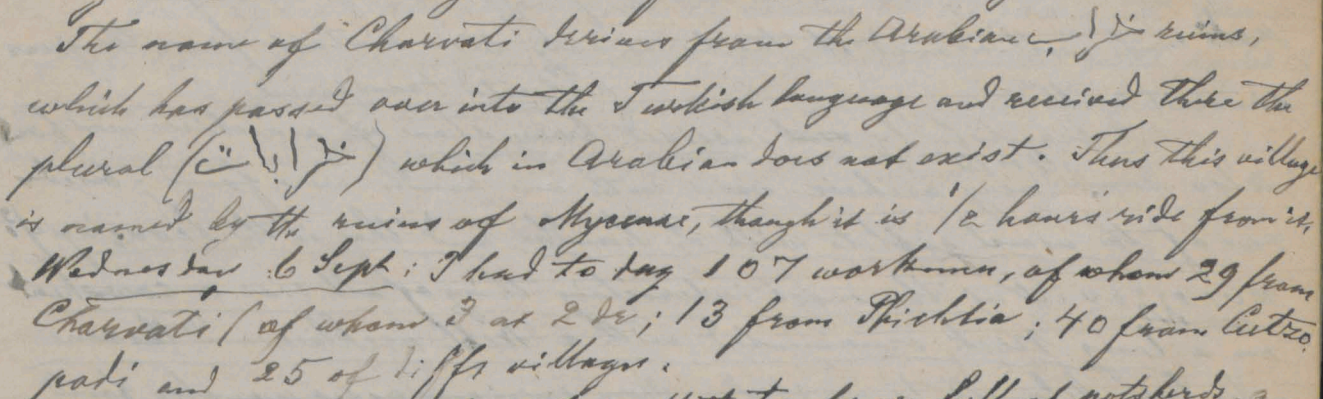 The name of Charvati derives from the Arabian خراب ruins,
which has passed over into the Turkish language and received there the
plural (خرابات) which in Arabian does not exist. Thus this village
is named by the ruins of Mycenae, though it is 1/2 hours ride from it.
Wednesday 6 Sept: I had to day 107 workmen, of whom 29 from
Charvati (of whom 3 at 2 dr; 13 from Phichtia; 40 from Cutzo
podi and 25 of diffr villages.
potsherds